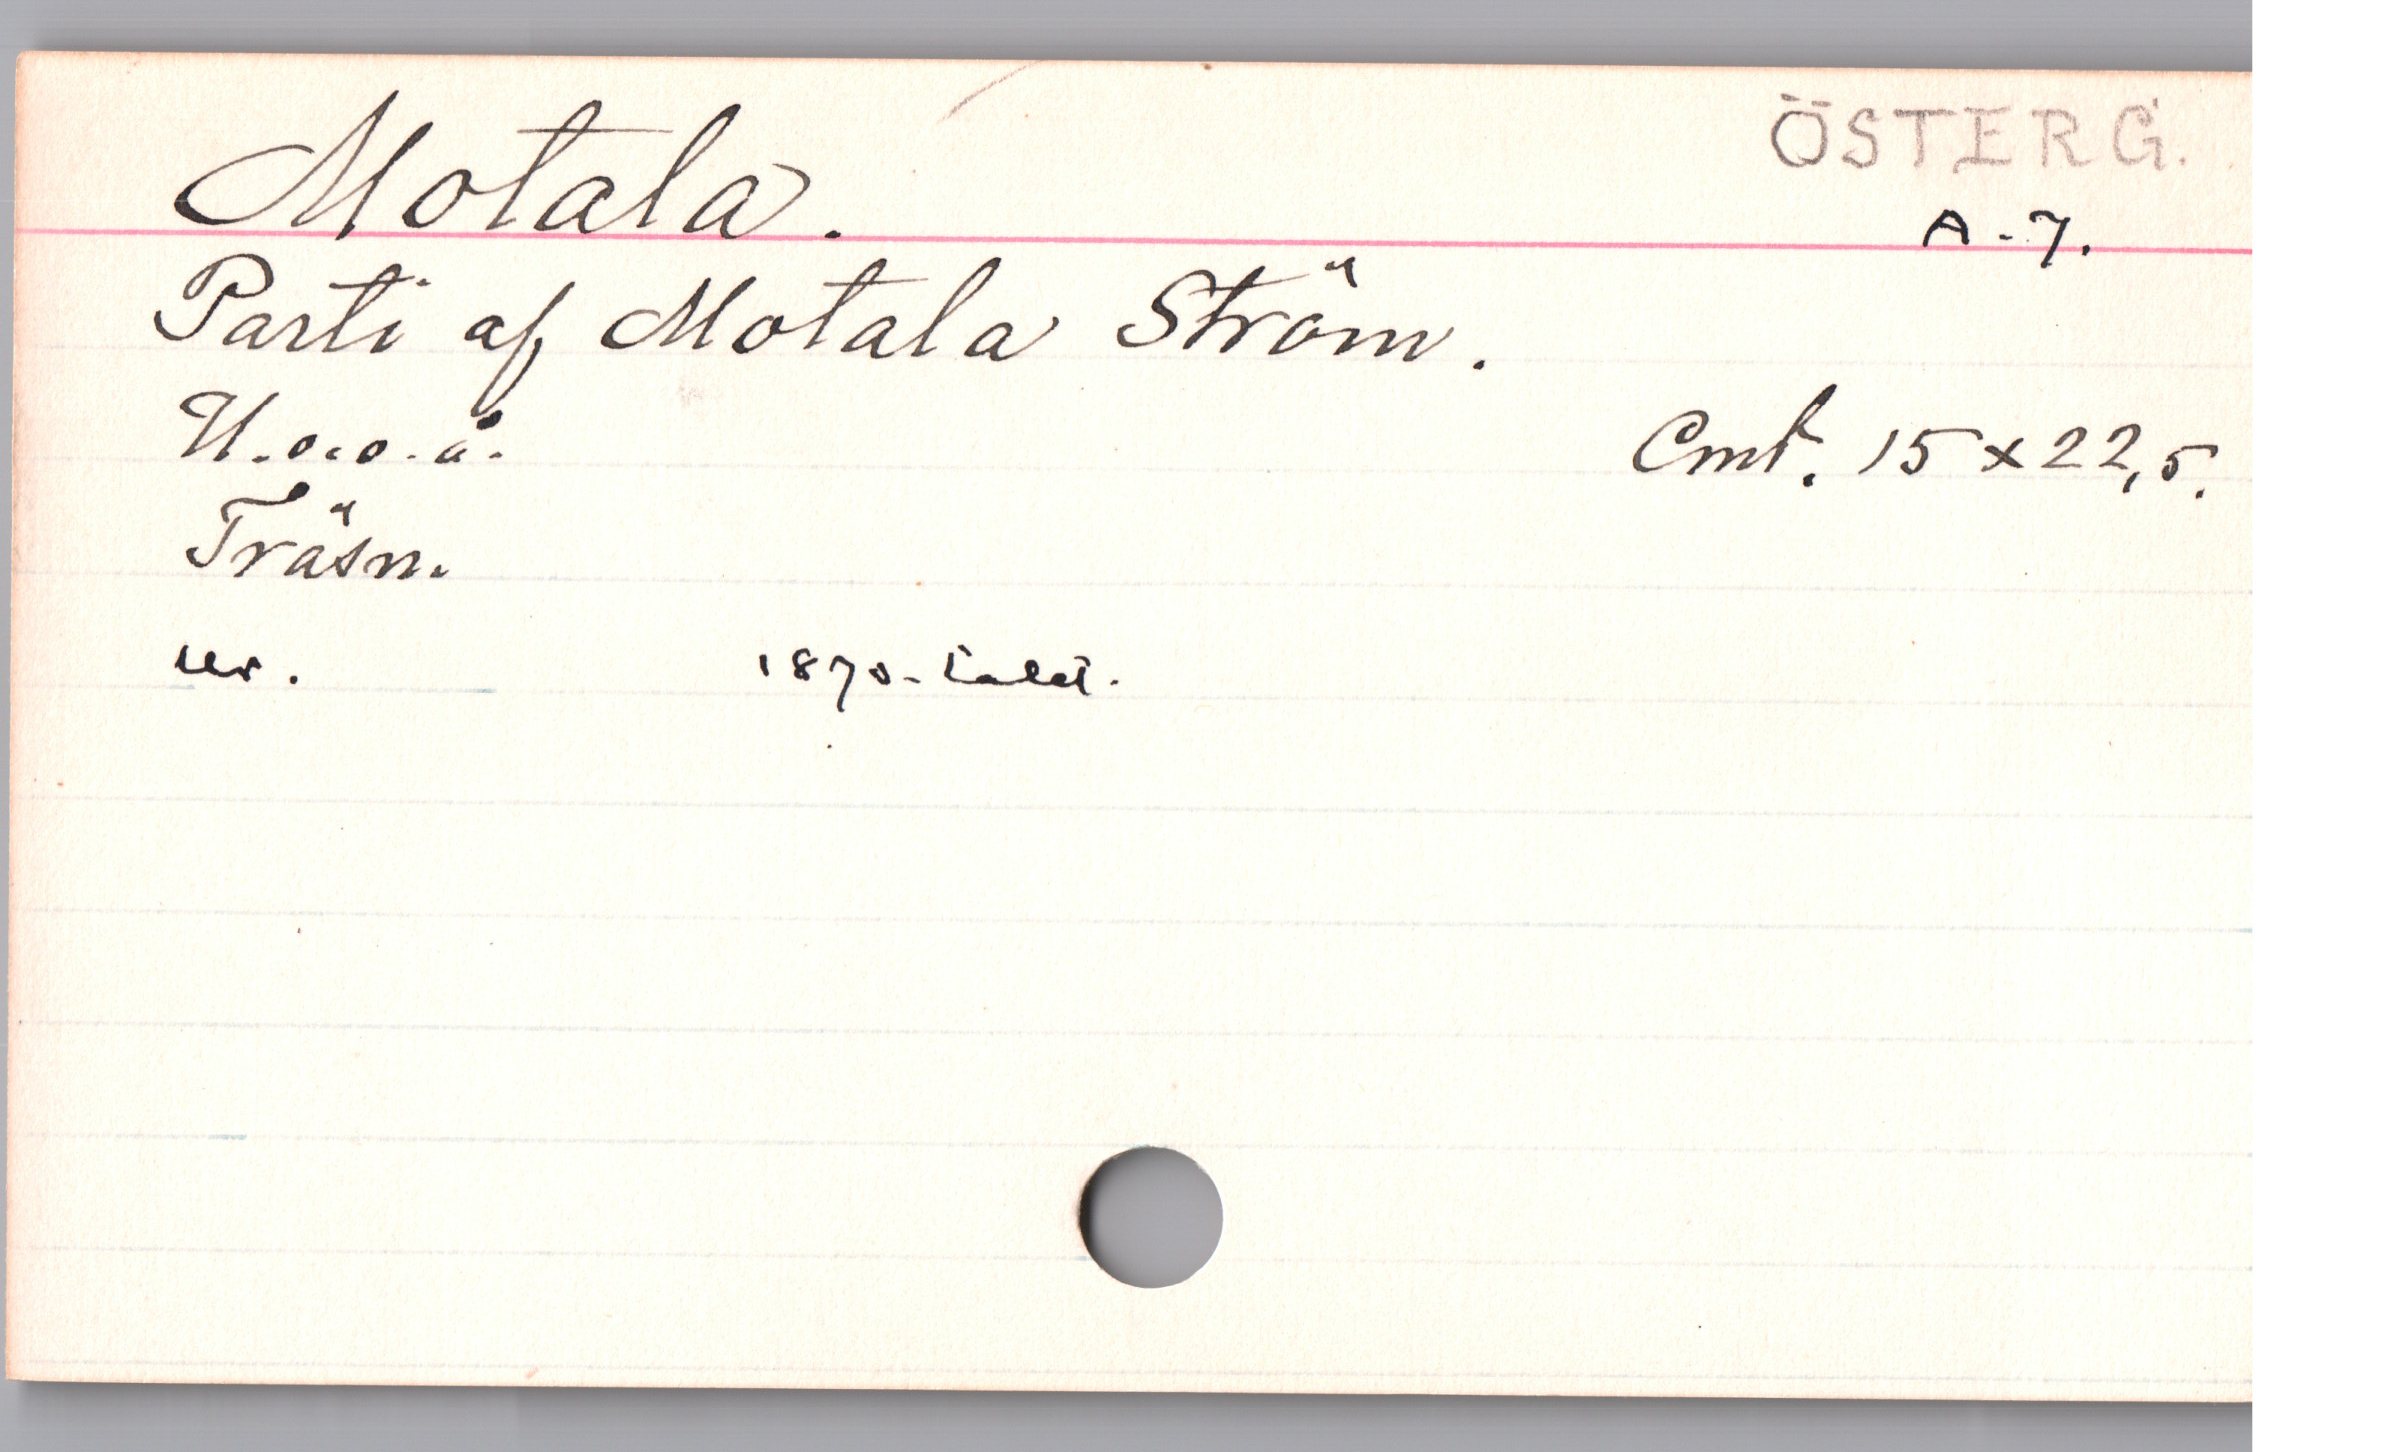 ÖSTERG.
Motala.
A-7.
Parti af Motala Ström.
U.o.o.å. Cmt. 15x22,5.
Träsn.
ur. 1870-talet.